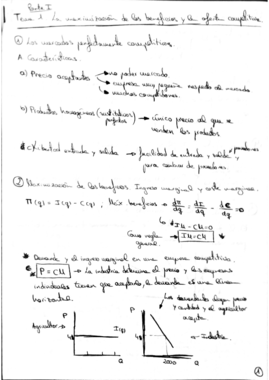 Parte I
Tema 1. La maximización de los beneficios y la oferta competitiva.
① Los mercados perfectamente competitivos.
A. Características.
a) Precio aceptantes → no poder mercado.
→ empresa muy pequeña respecto al mercado
→ muchos competidores.
b) Productos homogéneos (sustitutivos perfectos) → único precio al que se venden los productos
c) Libertad entrada y salida → facilidad de entrada y salida y para cambiar de proveedores.
② Maximización de los beneficios. Ingreso marginal y coste marginal.
Π(q) = I(q) - C(q) , Máx beneficio → dΠ/dq = dI/dq - dC/dq = 0
↳ IM - CM = 0
Como regla general → IM = CM
* Demanda y el ingreso marginal en una empresa competitiva.
P = CM → La industria determina el precio y las empresas
individuales tienen que aceptarlo, la demanda es una línea
horizontal.
Los demandantes eligen precio
y cantidad y el agricultor
acepta
Agricultor →
P
4$
I(q)
Q
P
4$
2000
Q
→ Industria
1